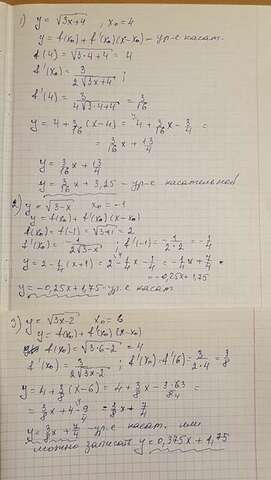 1) y = √3x+4 , x₀ = 4
y = f(x₀) + f'(x₀)(x-x₀) - ур-е касат.
f(4) = √3·4+4 = 4
f'(x₀) = 3/2√3x+4 ;
f'(4) = 3/4√3·4+4 = 3/16
y = 4 + 3/16 (x-4) = 4 + 3/16 x - 3/4 =
= 3/16 x + 13/4
y = 3/16 x + 13/4
y = 3/16 x + 3,25 - ур-е касательной
2) y = √3-x x₀ = -1
y = f(x₀) + f'(x₀)(x-x₀)
f(x₀) = f(-1) = √3+1 = 2
f'(x₀) = -1/2√3-x ; f'(-1) = -1/2·2 = -1/4
y = 2 - 1/4 (x+1) = 2 - 1/4 x - 1/4 = -1/4 x + 7/4 =
= -0,25x + 1,75
y = -0,25x + 1,75 - ур-е касат.
3) y = √3x-2 x₀ = 6
y = f(x₀) + f'(x₀)(x-x₀)
f(x₀) = √3·6-2 = 4
f'(x₀) = 3/2√3x-2 ; f'(x₀) = f'(6) = 3/2·4 = 3/8
y = 4 + 3/8 (x-6) = 4 + 3/8 x - 3·6/8 =
= 3/8 x + 4 - 9/4 = 3/8 x + 7/4
y = 3/8 x + 7/4 - ур-е касат. или
можно записать y = 0,375x + 1,75